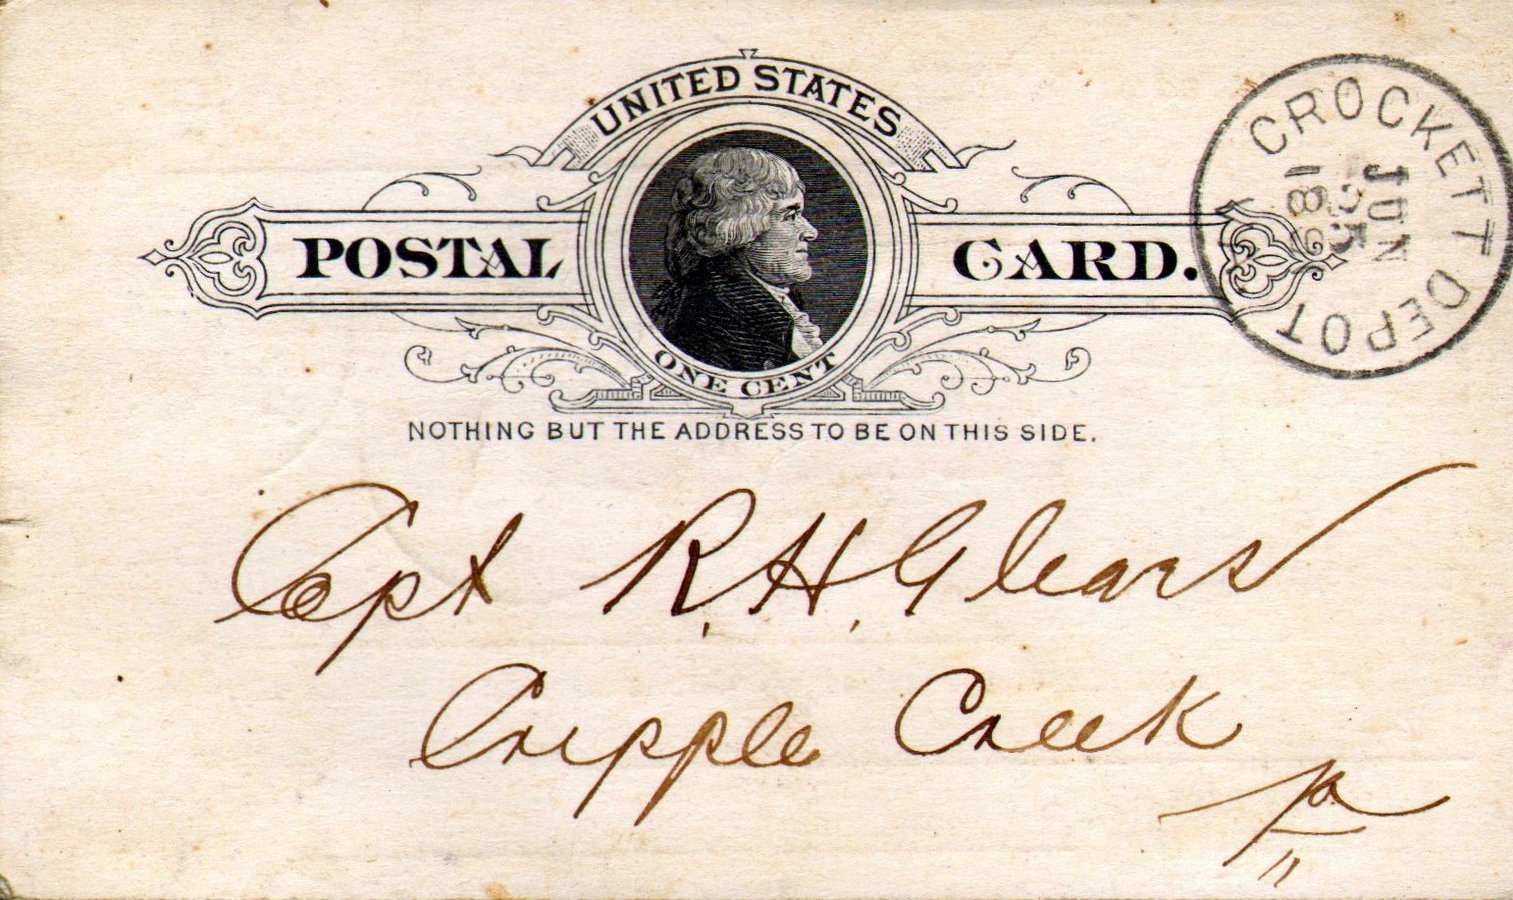 UNITED STATES
POSTAL CARD.
ONE CENT
NOTHING BUT THE ADDRESS TO BE ON THIS SIDE.
CROCKETT DEPOT
JUN
18
Capt R. H. Gleaves
Cripple Creek